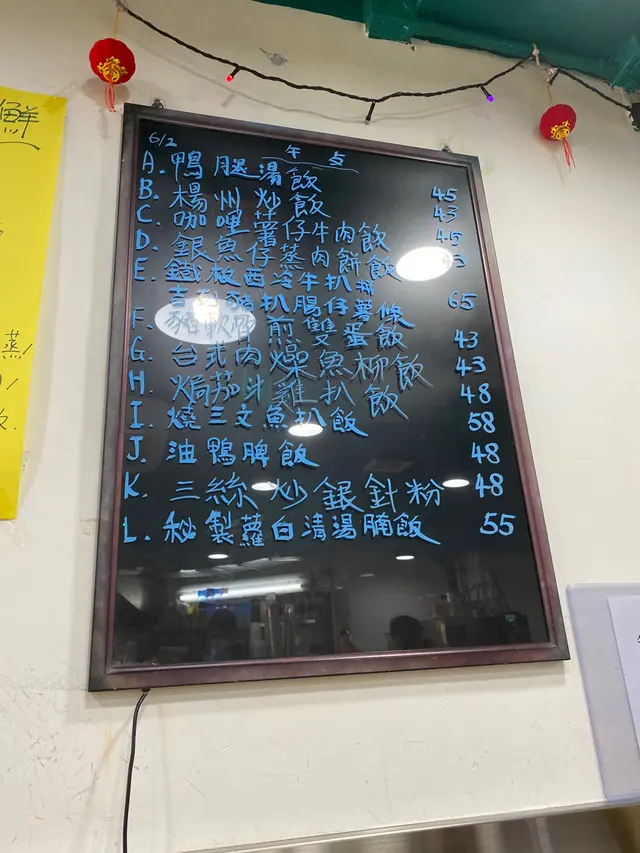 鮮
蒸
6/2 午点
A. 鴨腿湯飯 45
B. 楊州炒飯 43
C. 咖哩薯仔牛肉飯 45
D. 銀魚仔蒸肉餅飯
E. 鐵板西冷牛扒拼
吉列豬扒腸仔薯條 65
F. 豬軟骨煎雙蛋飯 43
G. 台式肉燥魚柳飯 43
H. 焗茄汁雞扒飯 48
I. 燒三文魚扒飯 58
J. 油鴨脾飯 48
K. 三絲炒銀針粉 48
L. 秘製蘿白清湯腩飯 55